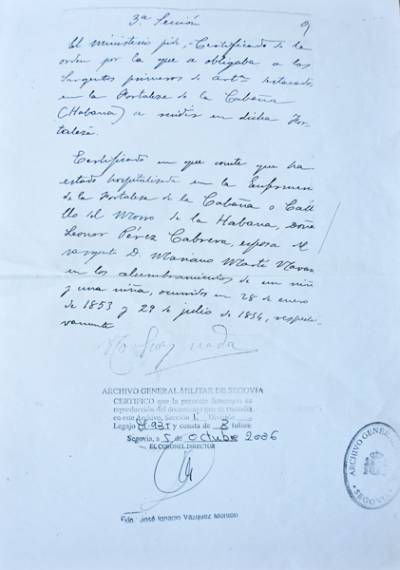 3ª Sección
9
El ministerio pide, Certificado de la
orden por la que a obligaba a los
Sargentos primeros de artª destacados
en la Fortaleza de la Cabaña
(Habana) a residir en dicha For-
taleza.
Certificado en que conste que ha
estado hospitalizada en la Enfermeria
de la Fortaleza de la Cabaña o Casti-
llo del Morro de la Habana, Doña
Leonor Pérez Cabrera, esposa del
sargento D. Mariano Martí Navarro
en los alumbramientos de un niño
y una niña, ocurridos en 28 de enero
de 1853 y 29 de julio de 1854, respecti-
vamente
ARCHIVO GENERAL MILITAR DE SEGOVIA
CERTIFICO que la presente fotocopia es
reproducción del documento que se custodia
en este Archivo, Sección 1, División
Legajo y consta de 8 folios.
Segovia, a 5 de Octubre 2006
EL CORONEL DIRECTOR
Fdo. José Ignacio Vázquez Montón
ARCHIVO GENERAL
SEGOVIA